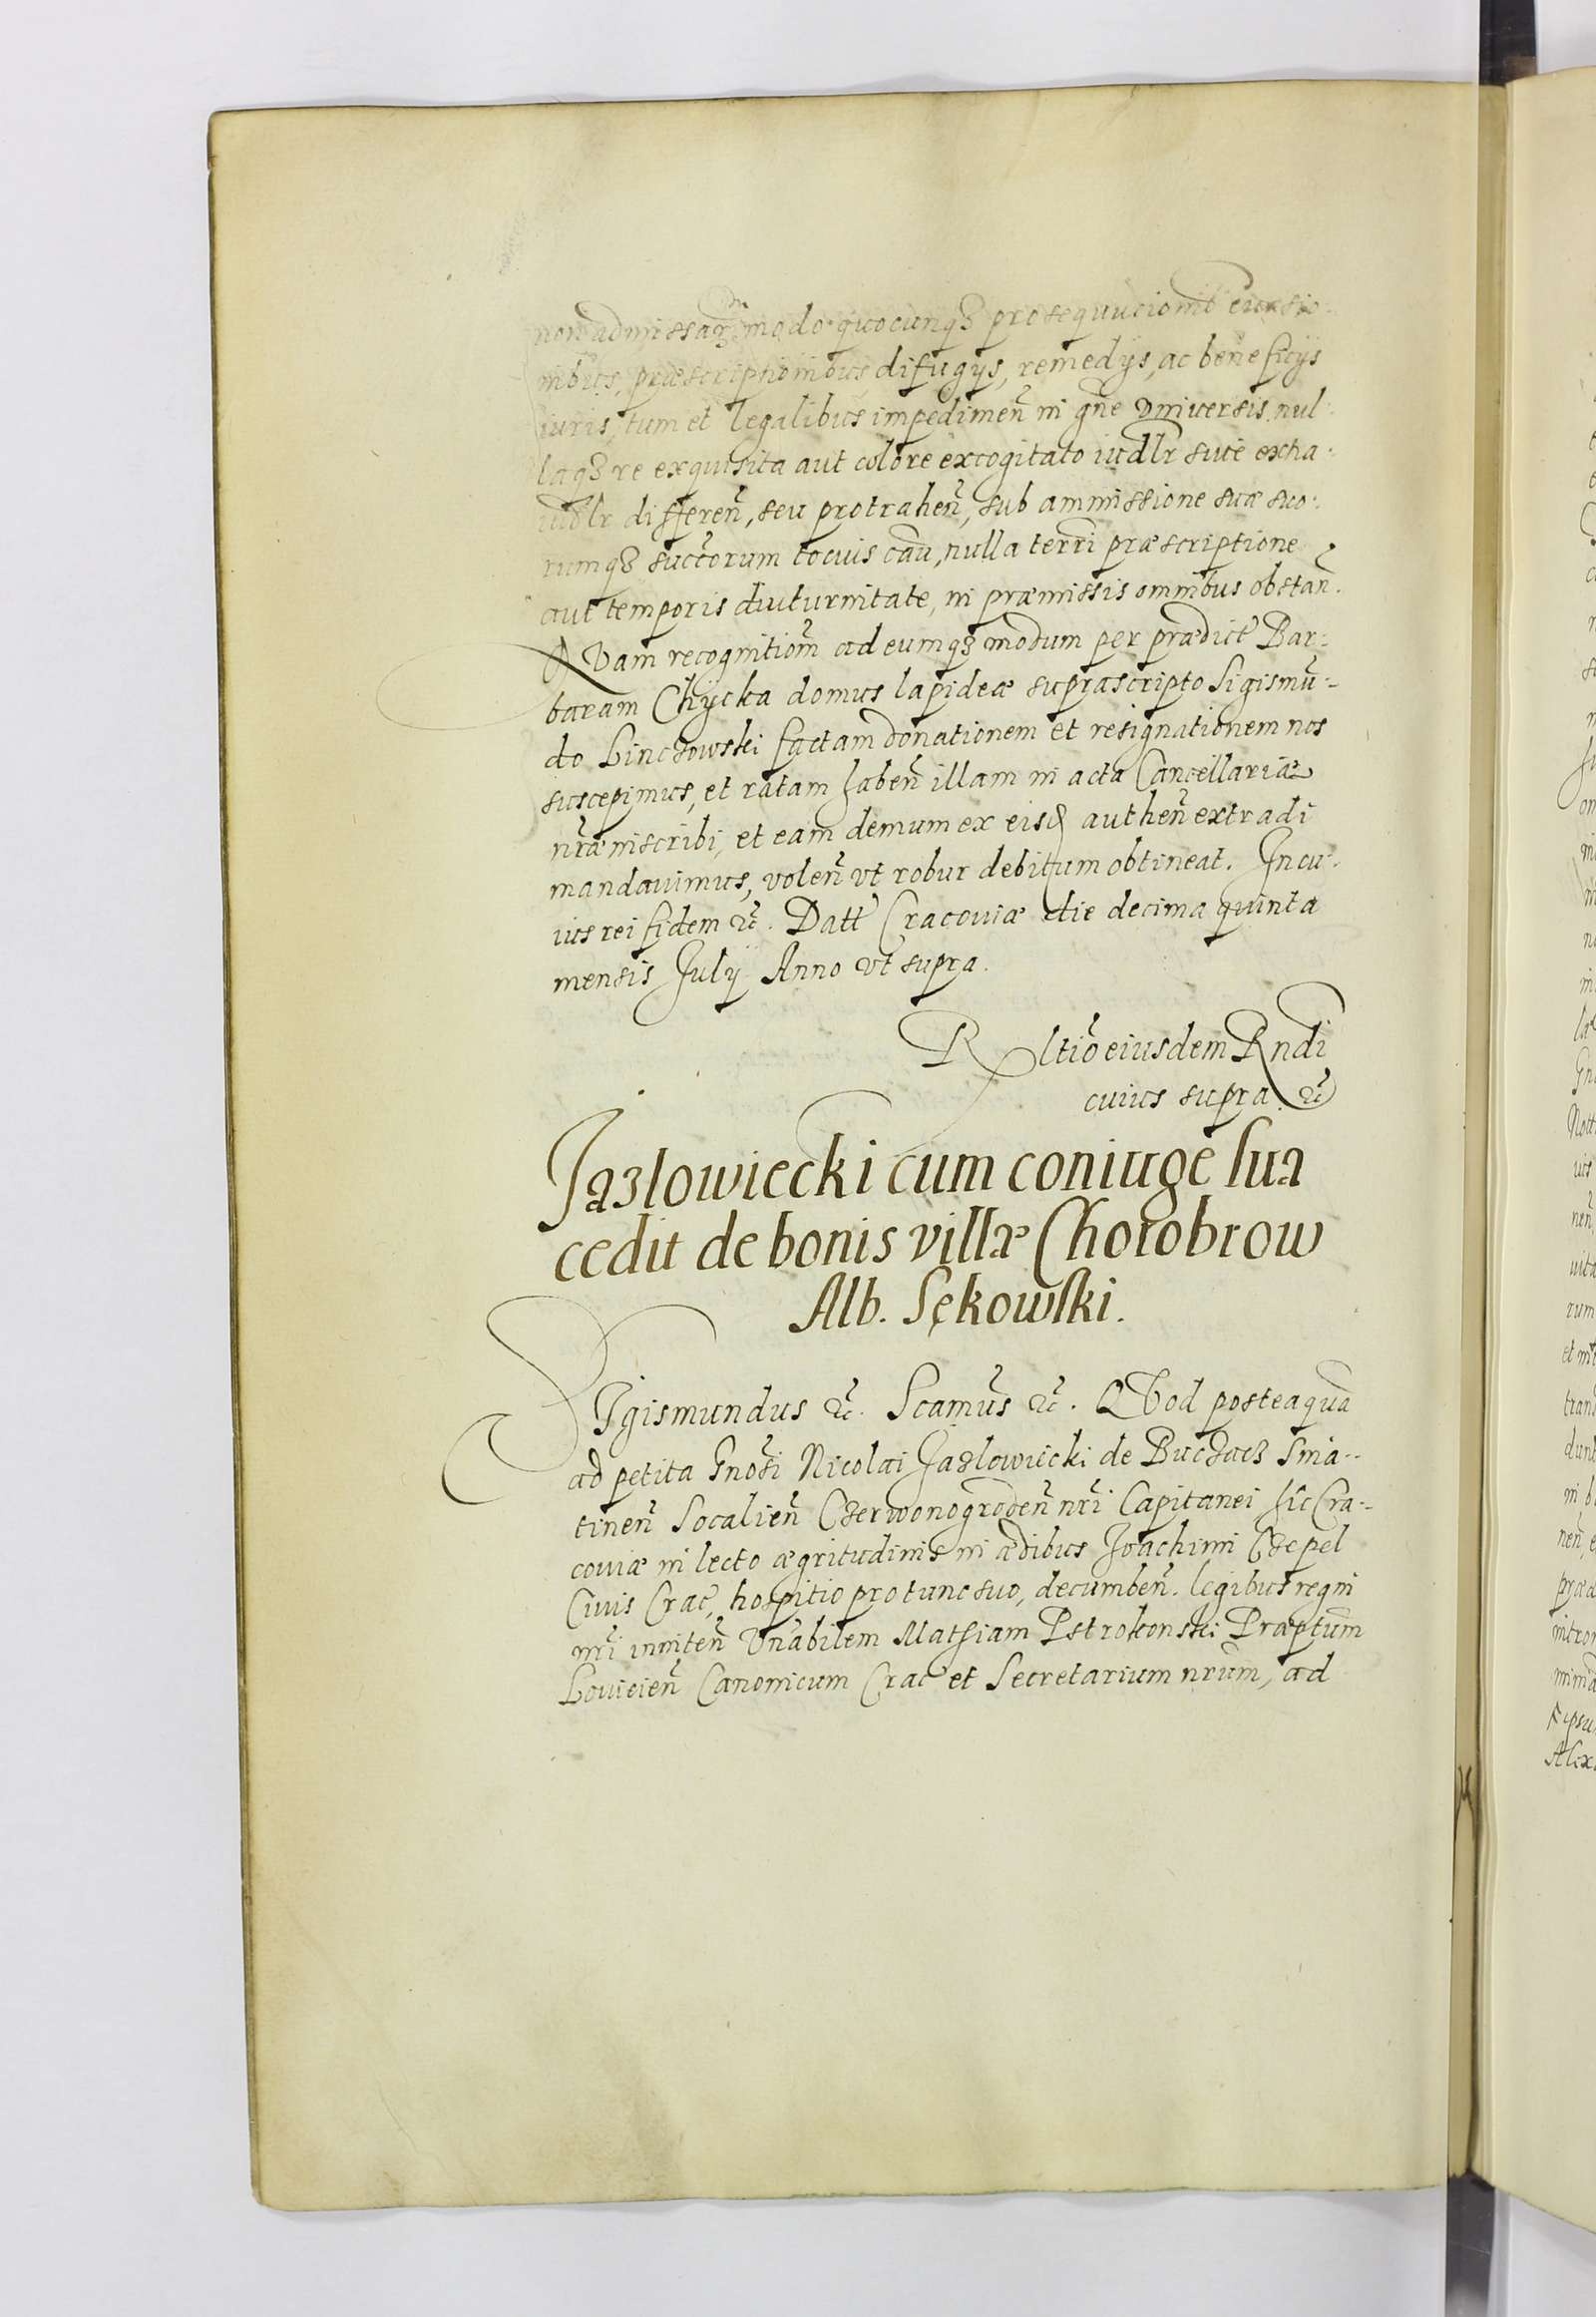 non admissaq3 modo quocunq3 prosequucionib euasio-
nibus, præscriptionibus difugijs, remedijs, ac beneficijs
iuris, tum et legalibus impedimen̄ in gn̄e vniuersis nul-
laq3 re exquisita aut colore excogitato iudlr siue extra-
iudlr differen̄, seu protrahen̄, sub ammissione suæ suo-
rumq3 succ̄orum tocius cau̅, nulla terrī præscriptione
aut temporis diuturnitate, in præmissis omnibus obstan̄.
QVam recognition̄ ad eumq3 modum per prædict Bar-
baram Chycka domus lapideæ suprascripto Sigismū-
do Linczowski factam donationem et resignationem nos
suscepimus, et ratam haben̄ illam in acta Cancellariæ
nrǣ inscribi, et eam demum ex eisd authen̄ extradi
mandauimus, volen̄ vt robur debitum obtineat. In cu-
ius rei fidem &c. Datt Cracouiæ die decima quinta
mensis Julij Anno vt supra.
Rltiō eiusdem Rndi
cuius supra &c
Jazlowiecki cum coniuge sua
cedit de bonis villæ Chorobrow
Alb. Sękowski.
SIgismundus &c. Scamūs &c. QVod posteaquā
ad petita Gnōsi Nicolai Jazlowiecki de Buczacz Snia-
tinen̄ Socalien̄ Czerwonogroden̄ nrī Capitanei hic Cra-
couiæ in lecto ægritudinis in ædibus Joachimi Czepel
Ciuis Crac̄, hospitio pro tunc suo, decumben̄. legibus regni
nrī inniten̄ Vnābilem Mathiam Pstrokonski Præptum
Louicien̄ Canonicum Crac̄ et Secretarium nrūm, ad